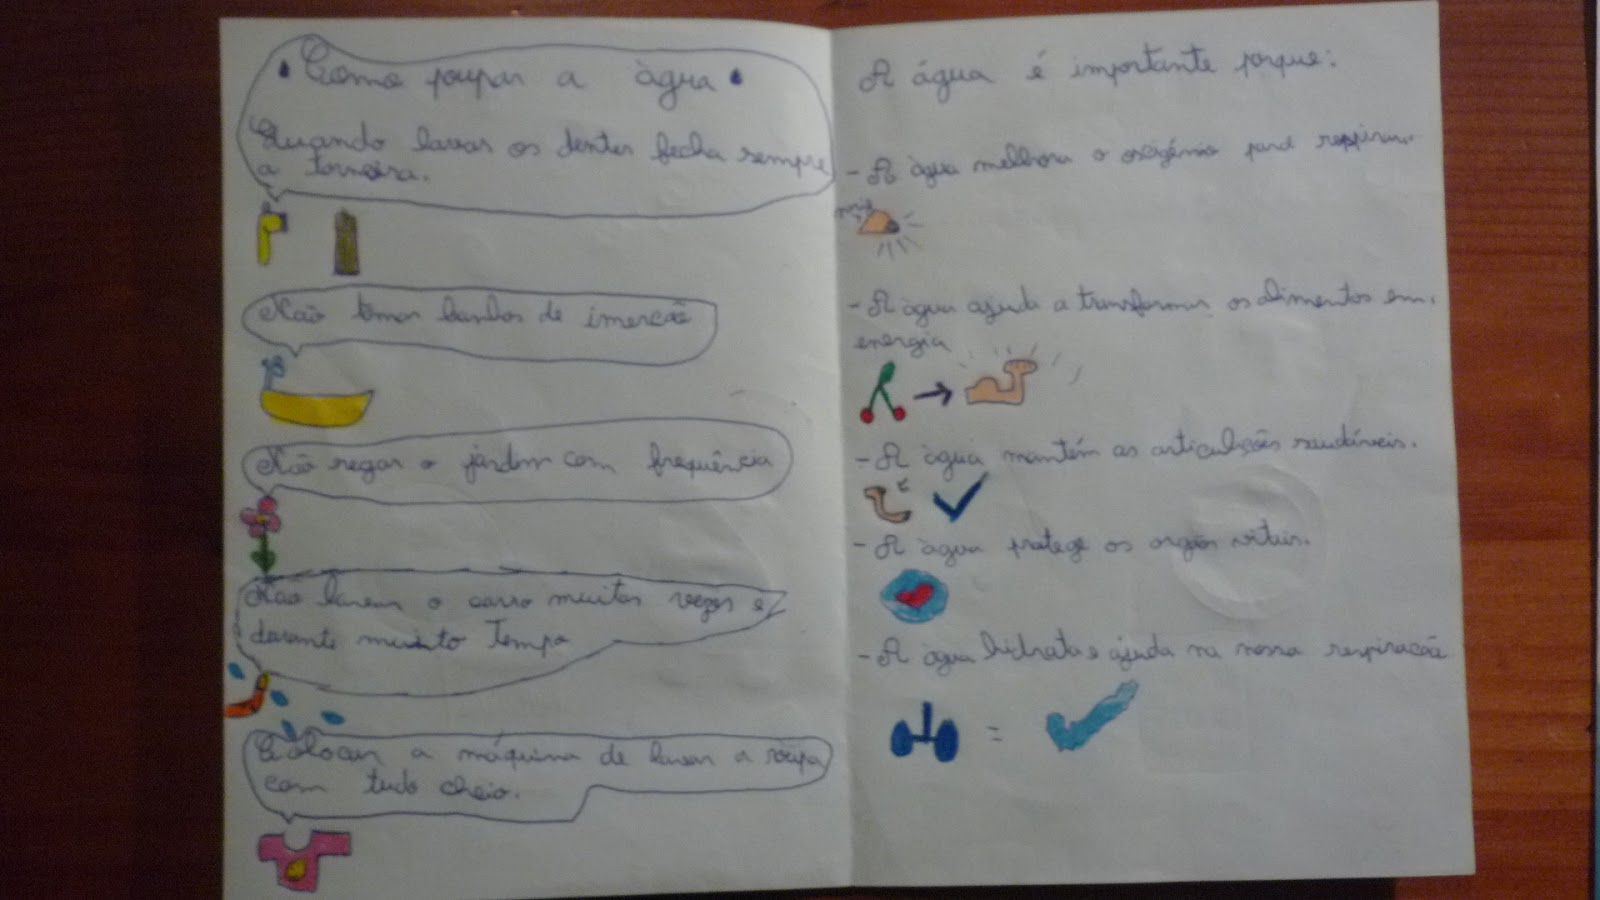 Como poupar a àgua
Quando lavar os dentes fecha sempre
a torneira.
Não tomar banhos de imercão
Não regar o jardim com frequência
Não lavar o carro muitas vezes e
durante muito Tempo
Colocar a máquina de lavar a roupa
com tudo cheio.
A água é importante porque:
- A àgua melhora o oxigénio para respirar.
- A àgua ajuda a transformar os alimentos em
energia
- A àgua mantém as articulções saudáveis.
- A àgua protege os orgãos vitais.
- A àgua hidrata e ajuda na nossa respiracão
=